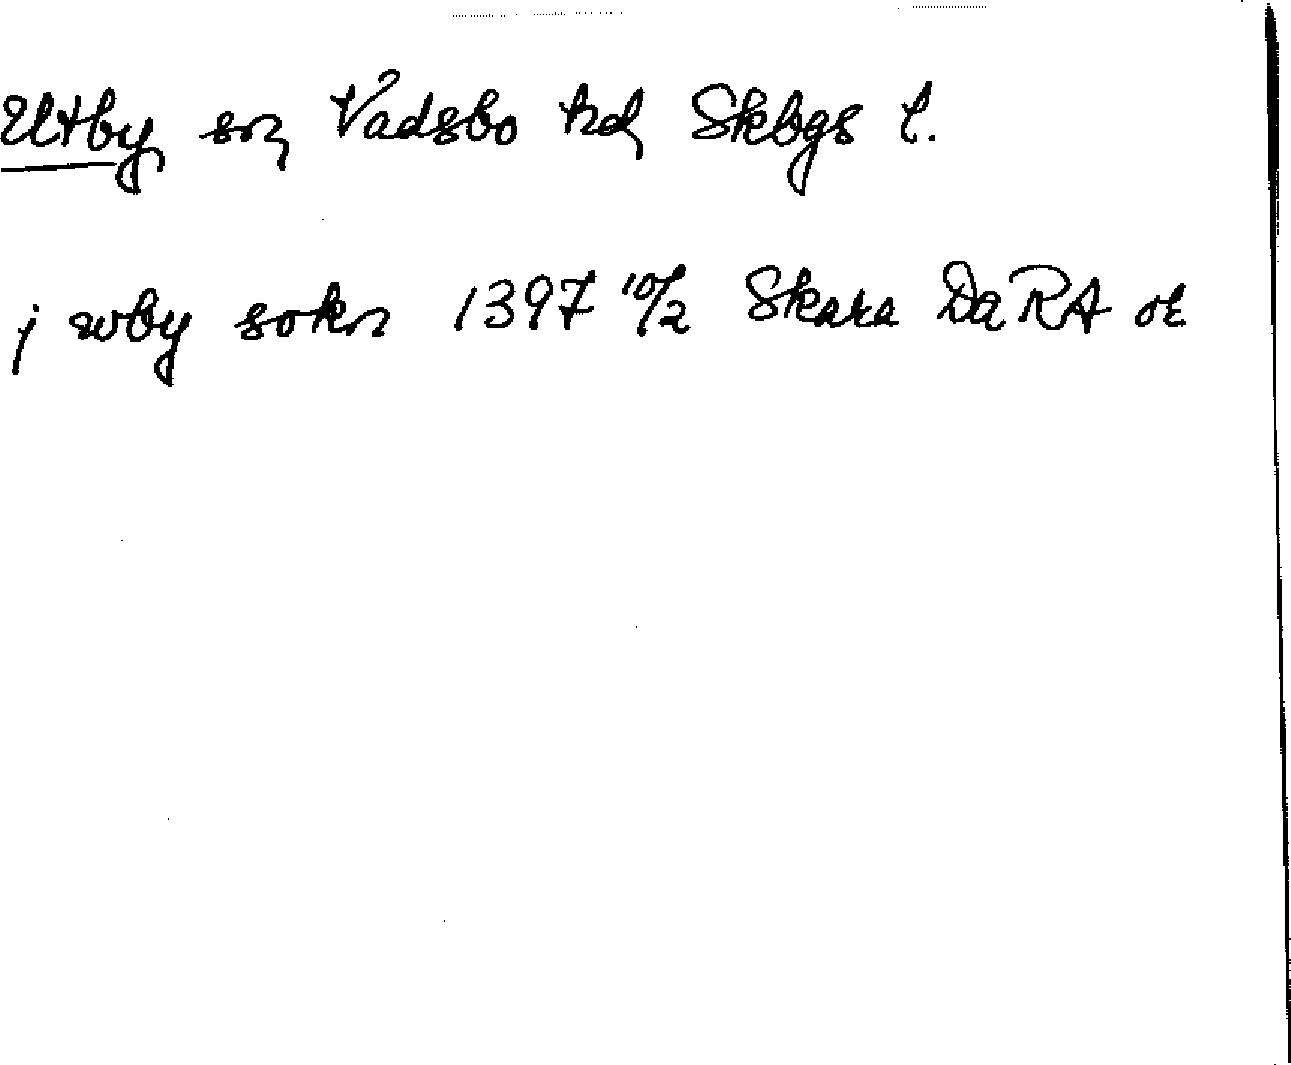 Utby sn Vadsbo hd Skbgs l.
j wby sokn 1397 10/2 Skara DaRA or